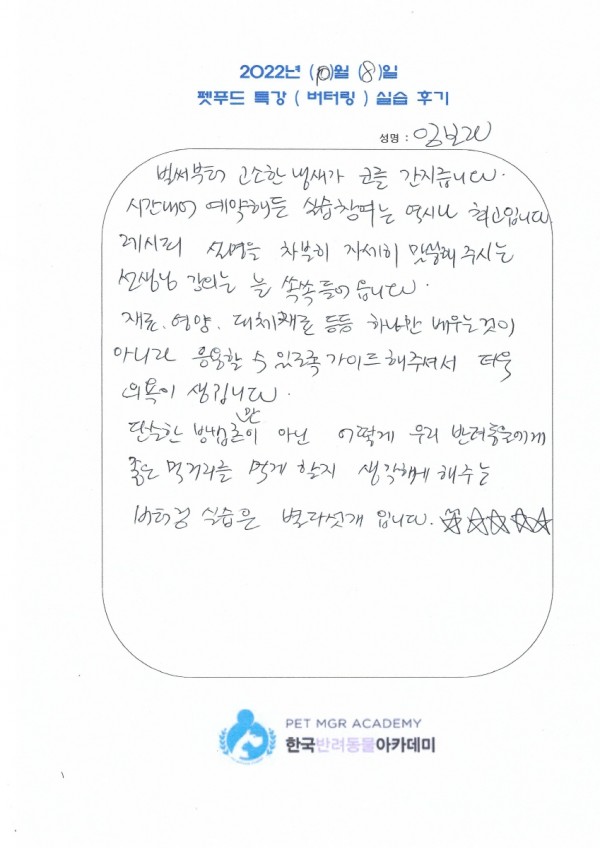 2022년 (10)월 (8)일
펫푸드 특강 ( 버터링 ) 실습 후기
성명 : 임보라
벌써부터 고소한 냄새가 코를 간지릅니다.
시간내어 예약해둔 실습참여는 역시나 최고입니다
레시피 설명을 차분히 자세히 말씀해 주시는
선생님 강의는 늘 쏙쏙 들어옵니다.
재료, 영양, 대체재료 등등 하나만 배우는것이
아니라 응용할 수 있도록 가이드 해주셔서 더욱
의욕이 생깁니다.
단순한 방법만이 아닌 어떻게 우리 반려동물에게
좋은 먹거리를 먹게 할지 생각하게 해주는
버터링 실습은 별다섯개 입니다. ☆☆☆☆☆
PET MGR ACADEMY
한국반려동물아카데미